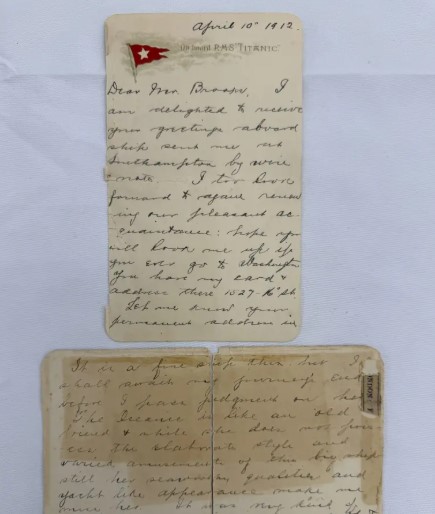 April 10th 1912.
On board R.M.S. TITANIC.
Dear Mrs. Brown, I
am delighted to receive
your greetings aboard
ship sent me at
Southampton by wire
& note. I too look
forward to again renew
ing our pleasant ac
quaintance; hope you
will look me up if
you ever go to Washington
You have my card &
address there 1527-16th St.
Let me know your
permanent address in
It is a fine ship this but I
shall await my journey's end
before I pass judgment on her
The Oceanic is like an old
friend & while she does not
the elaborate style and
varied amusements of this big ship
still her seaworthy qualities and
yacht like appearance make me
miss her. It was very kind of